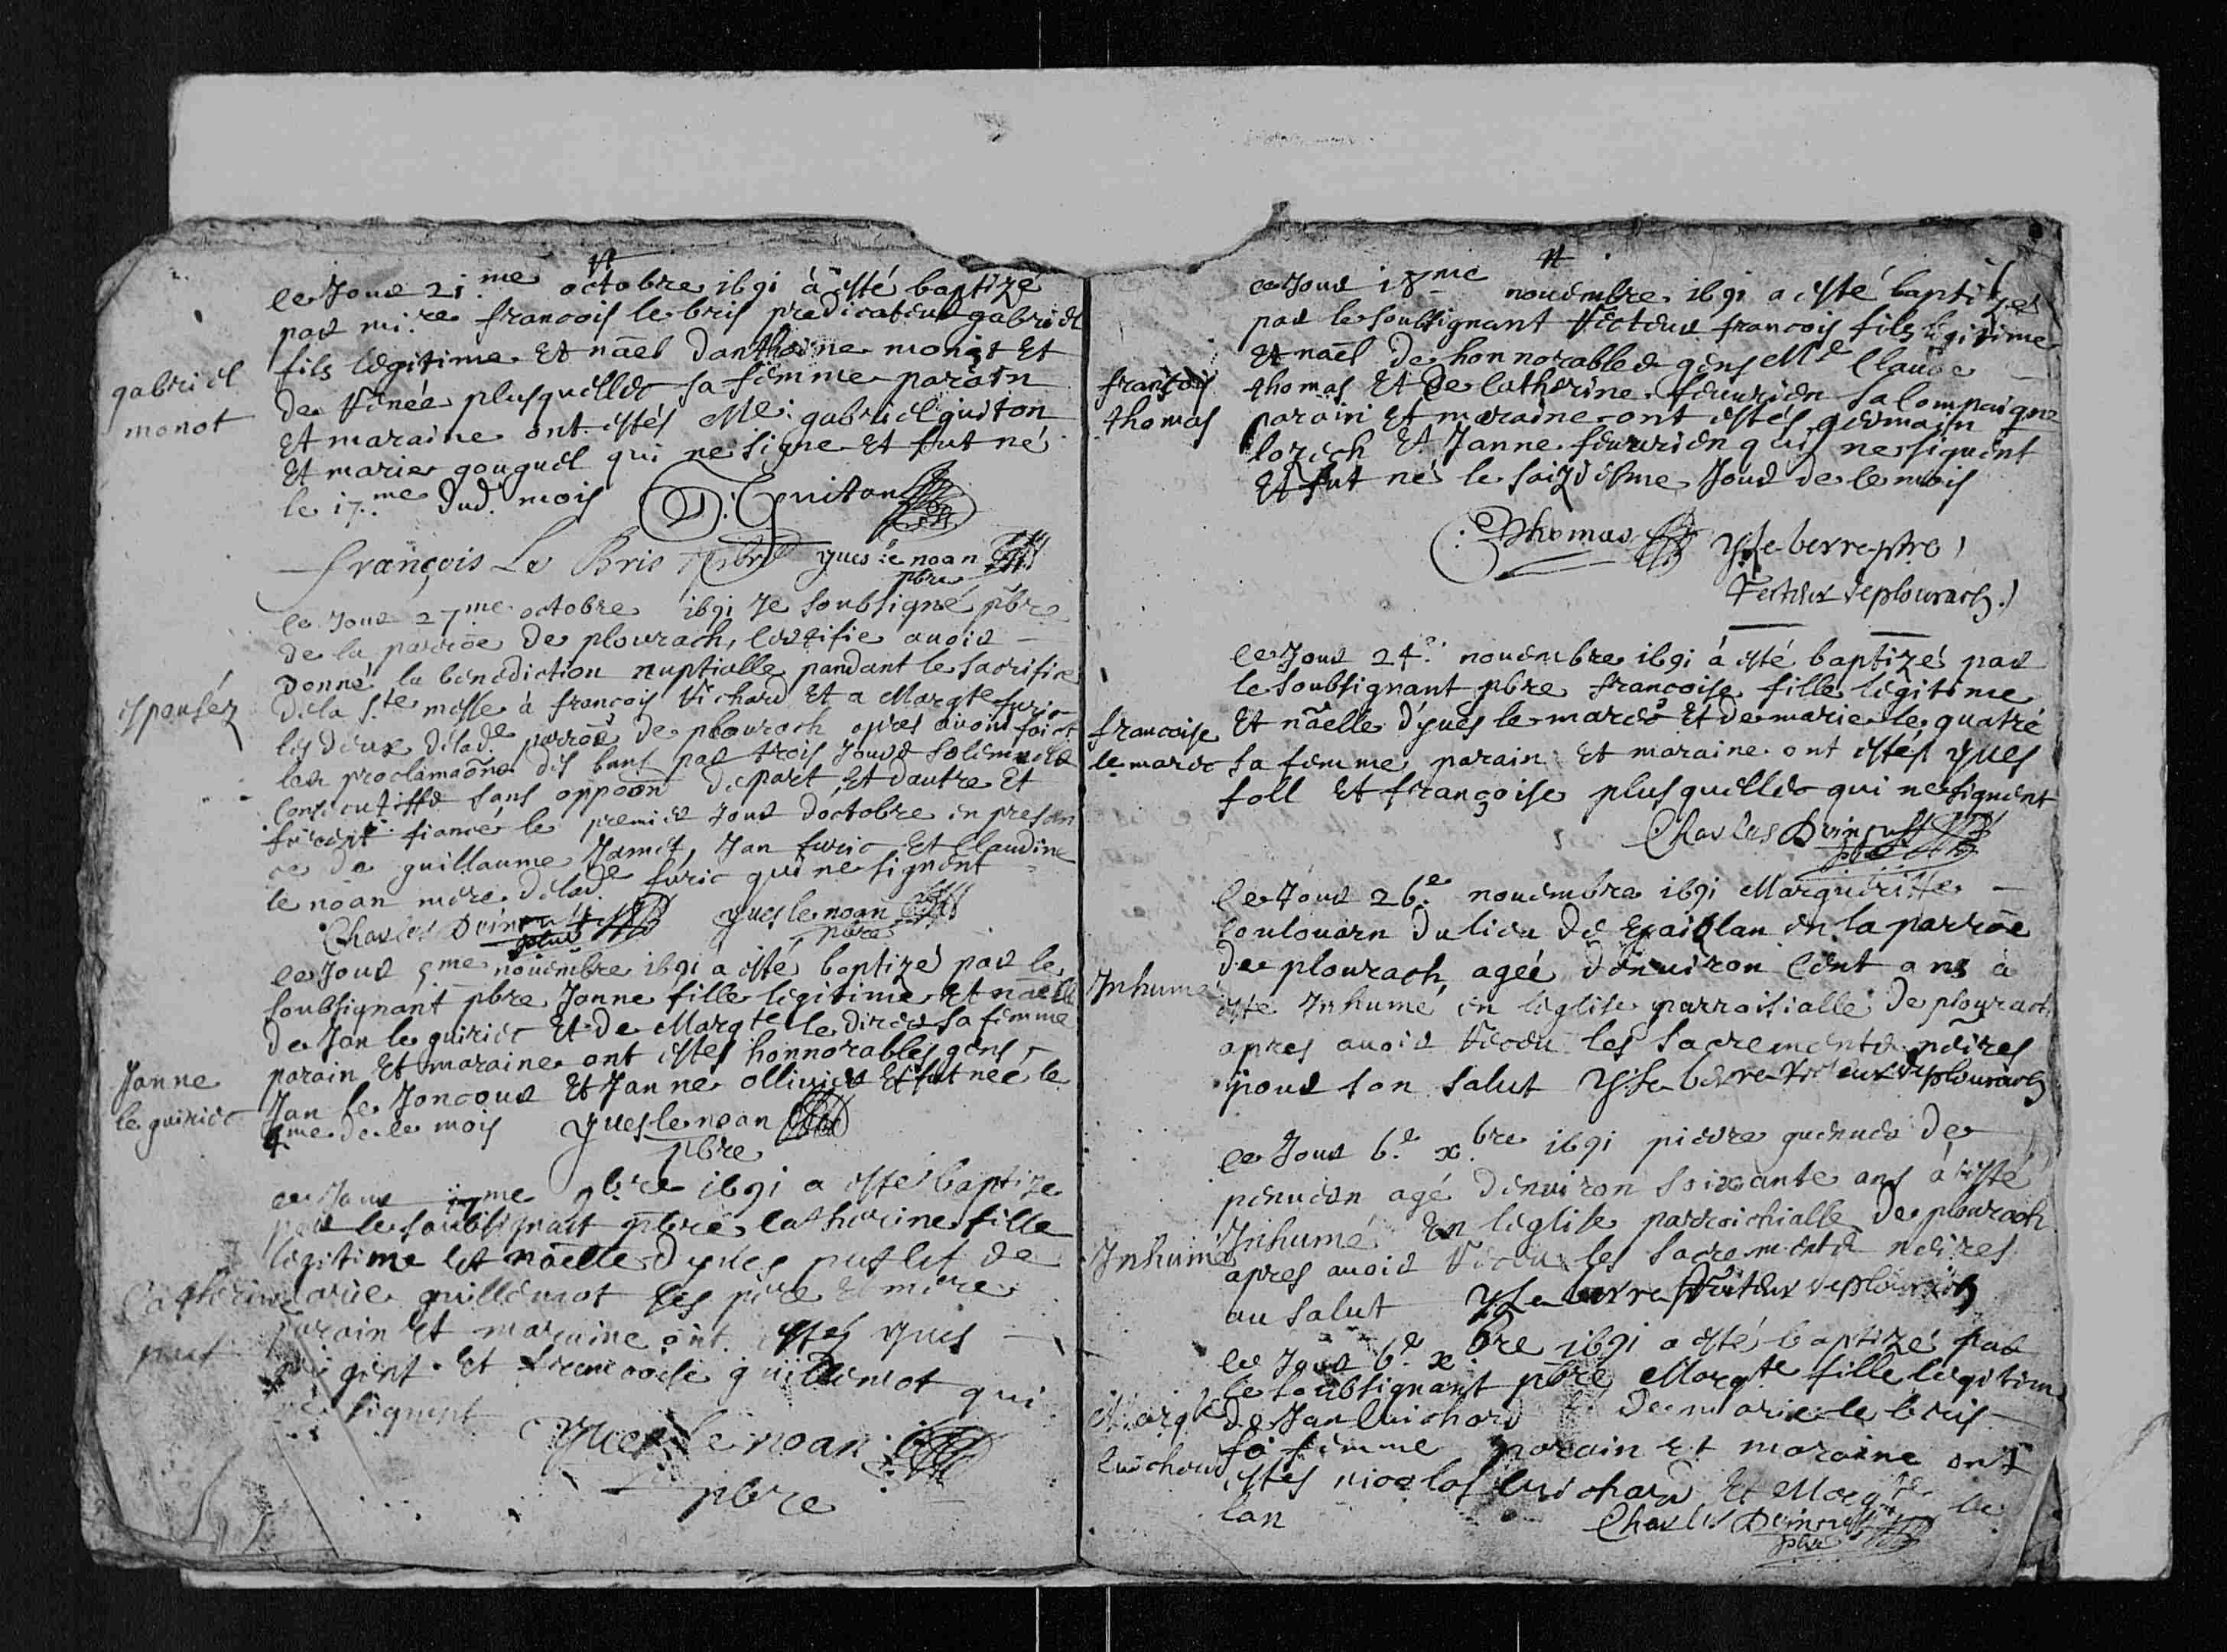 ce Jour 21.me octobre 1691 à esté baptizé
par mi.re francois le bris predicateur gabriel
fils légitime Et nāel danthoine monot Et
gabriel
monot
de renée plusquellec sa femme parain
Et maraine ont estés Me: gabriel guiton
Et marie gouguel qui ne signe Et fut né
le 17.me dud. mois G: Guiton
françois Le Bris pbre yues le noan
pbre
ce Jour 27me octobre 1691 Je soubsigné pbre
de la parroe de plourach, certifie auoir
donné la benediction nuptialle pandant le sacrifice
espousez
de la s.te messe à francois richard Et a Margte furic
les deux de lad.e parroe de plourach apres auoir faict
les proclamaōns des bans par trois Jours solemnels
consecutiffs sans oppoōn de part, Et dautre Et
furent fiancé le premier Jour doctobre en presan
ce de guillaume Jamet, Jan furic Et Claudine
le noan mere de lad.e furic qui ne signent
Charles yues le noan
pbre pbre
ce Jour 5me nouembre 1691 a esté baptizé par le
soubsignant pbre Janne fille legitime Et naelle
de Jan le guiriec Et de Margte le direr sa femme
parain Et maraine ont estes honnorables gens
Janne
le guiriec
Jan le Joncour Et Janne olliuier Et fut neé le
4me de ce mois yues le noan
pbre
ce Jour 17me 9bre 1691 a esté baptize
par le soubsignant pbre catherine fille
legitime Et naelle dyues de
Catherine
marie guillemot ses pere Et mere
parain Et maraine ont estés yues
Et francoise guillemot qui
ne signent
yues le noan
pbre
ce Jour 18me nouembre 1691 a esté baptizé
par le soubsignant recteur francois fils legitime
Et nāel de honnorables gens Me Claude
françois
thomas
thomas Et de Catherine feuurier sa compaigne
parain Et maraine ont estés germain
lorech Et Janne feuurier qui ne signent
Et fut né le saiziesme Jour de ce mois
: Thomas y Le berre pbre
recteur de plourach.
ce Jour 24.e nouembre 1691 à esté baptizé par
le soubsignant pbre francoise fille légitime
francoise
le marec
Et nāelle d'yues le marec Et de marie le quatré
sa femme parain Et maraine ont estés yues
foll Et françoise plusquellec qui ne signent
Charles
pbre
ce Jour 26.e nouembre 1691 Margueritte
coulouarn du lieu de en la parroe
de plourach, ageé denuiron cent ans à
Inhumé
esté Inhumé en l'eglise parroisialle de plourach
apres auoir receu les sacrements nēires
pour son salut y Le berre recteur de plourach
ce Jour 6.e xbre 1691 pierre guenuer de
penuern agé denuiron soixante ans à esté
Inhumé
Inhumé En leglise parroichialle de plourach
apres auoir receu les sacrements neires
au salut y Le berre recteur de plourach
ce Jour 6.e xbre 1691 a esté baptizé par
le soubsignant pbre Margte fille legitime
Margte
Cuichard
de Jan Cuichard Et De marie le bris
sa femme parain Et maraine ont
estés nicolas Cuichard Et Margte le
lan Charles
pbre